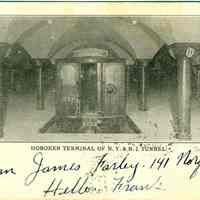 HOBOKEN TERMINAL OF N. Y. & N. J. TUNNEL.
James Farley. 141
Hello Frank